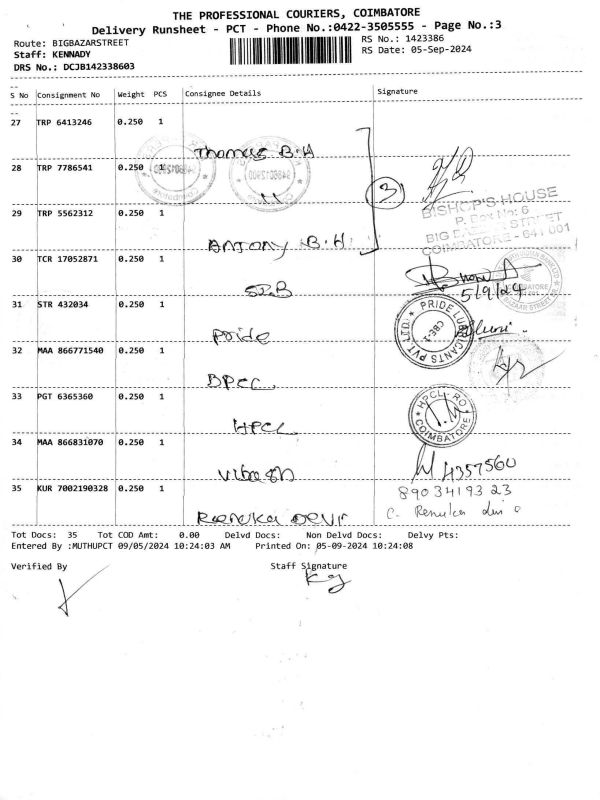 THE PROFESSIONAL COURIERS, COIMBATORE
Delivery Runsheet - PCT - Phone No.:0422-3505555 - Page No.:3
Route: BIGBAZARSTREET
RS No.: 1423386
Staff: KENNADY
RS Date: 05-Sep-2024
DRS No.: DCJB142338603
S No Consignment No Weight PCS Consignee Details Signature
27 TRP 6413246 0.250 1
Thomas B.H
28 TRP 7786541 0.250 1
11
3
BISHOP'S HOUSE
P. Box No: 6
BIG BAZAAR STREET
COIMBATORE - 641 001
29 TRP 5562312 0.250 1
Antony B.H
30 TCR 17052871 0.250 1
5/9/24
31 STR 432034 0.250 1
Pride
PRIDE LUBRICANTS PVT. LTD.
CBE-1
32 MAA 866771540 0.250 1
BPCL
33 PGT 6365360 0.250 1
HPCL
HPCL-RO
COIMBATORE
34 MAA 866831070 0.250 1
4357560
35 KUR 7002190328 0.250 1
8903419323
Renuka Devi
C. Renuka
Tot Docs: 35 Tot COD Amt: 0.00 Delvd Docs: Non Delvd Docs: Delvy Pts:
Entered By :MUTHUPCT 09/05/2024 10:24:03 AM Printed On: 05-09-2024 10:24:08
Verified By Staff Signature